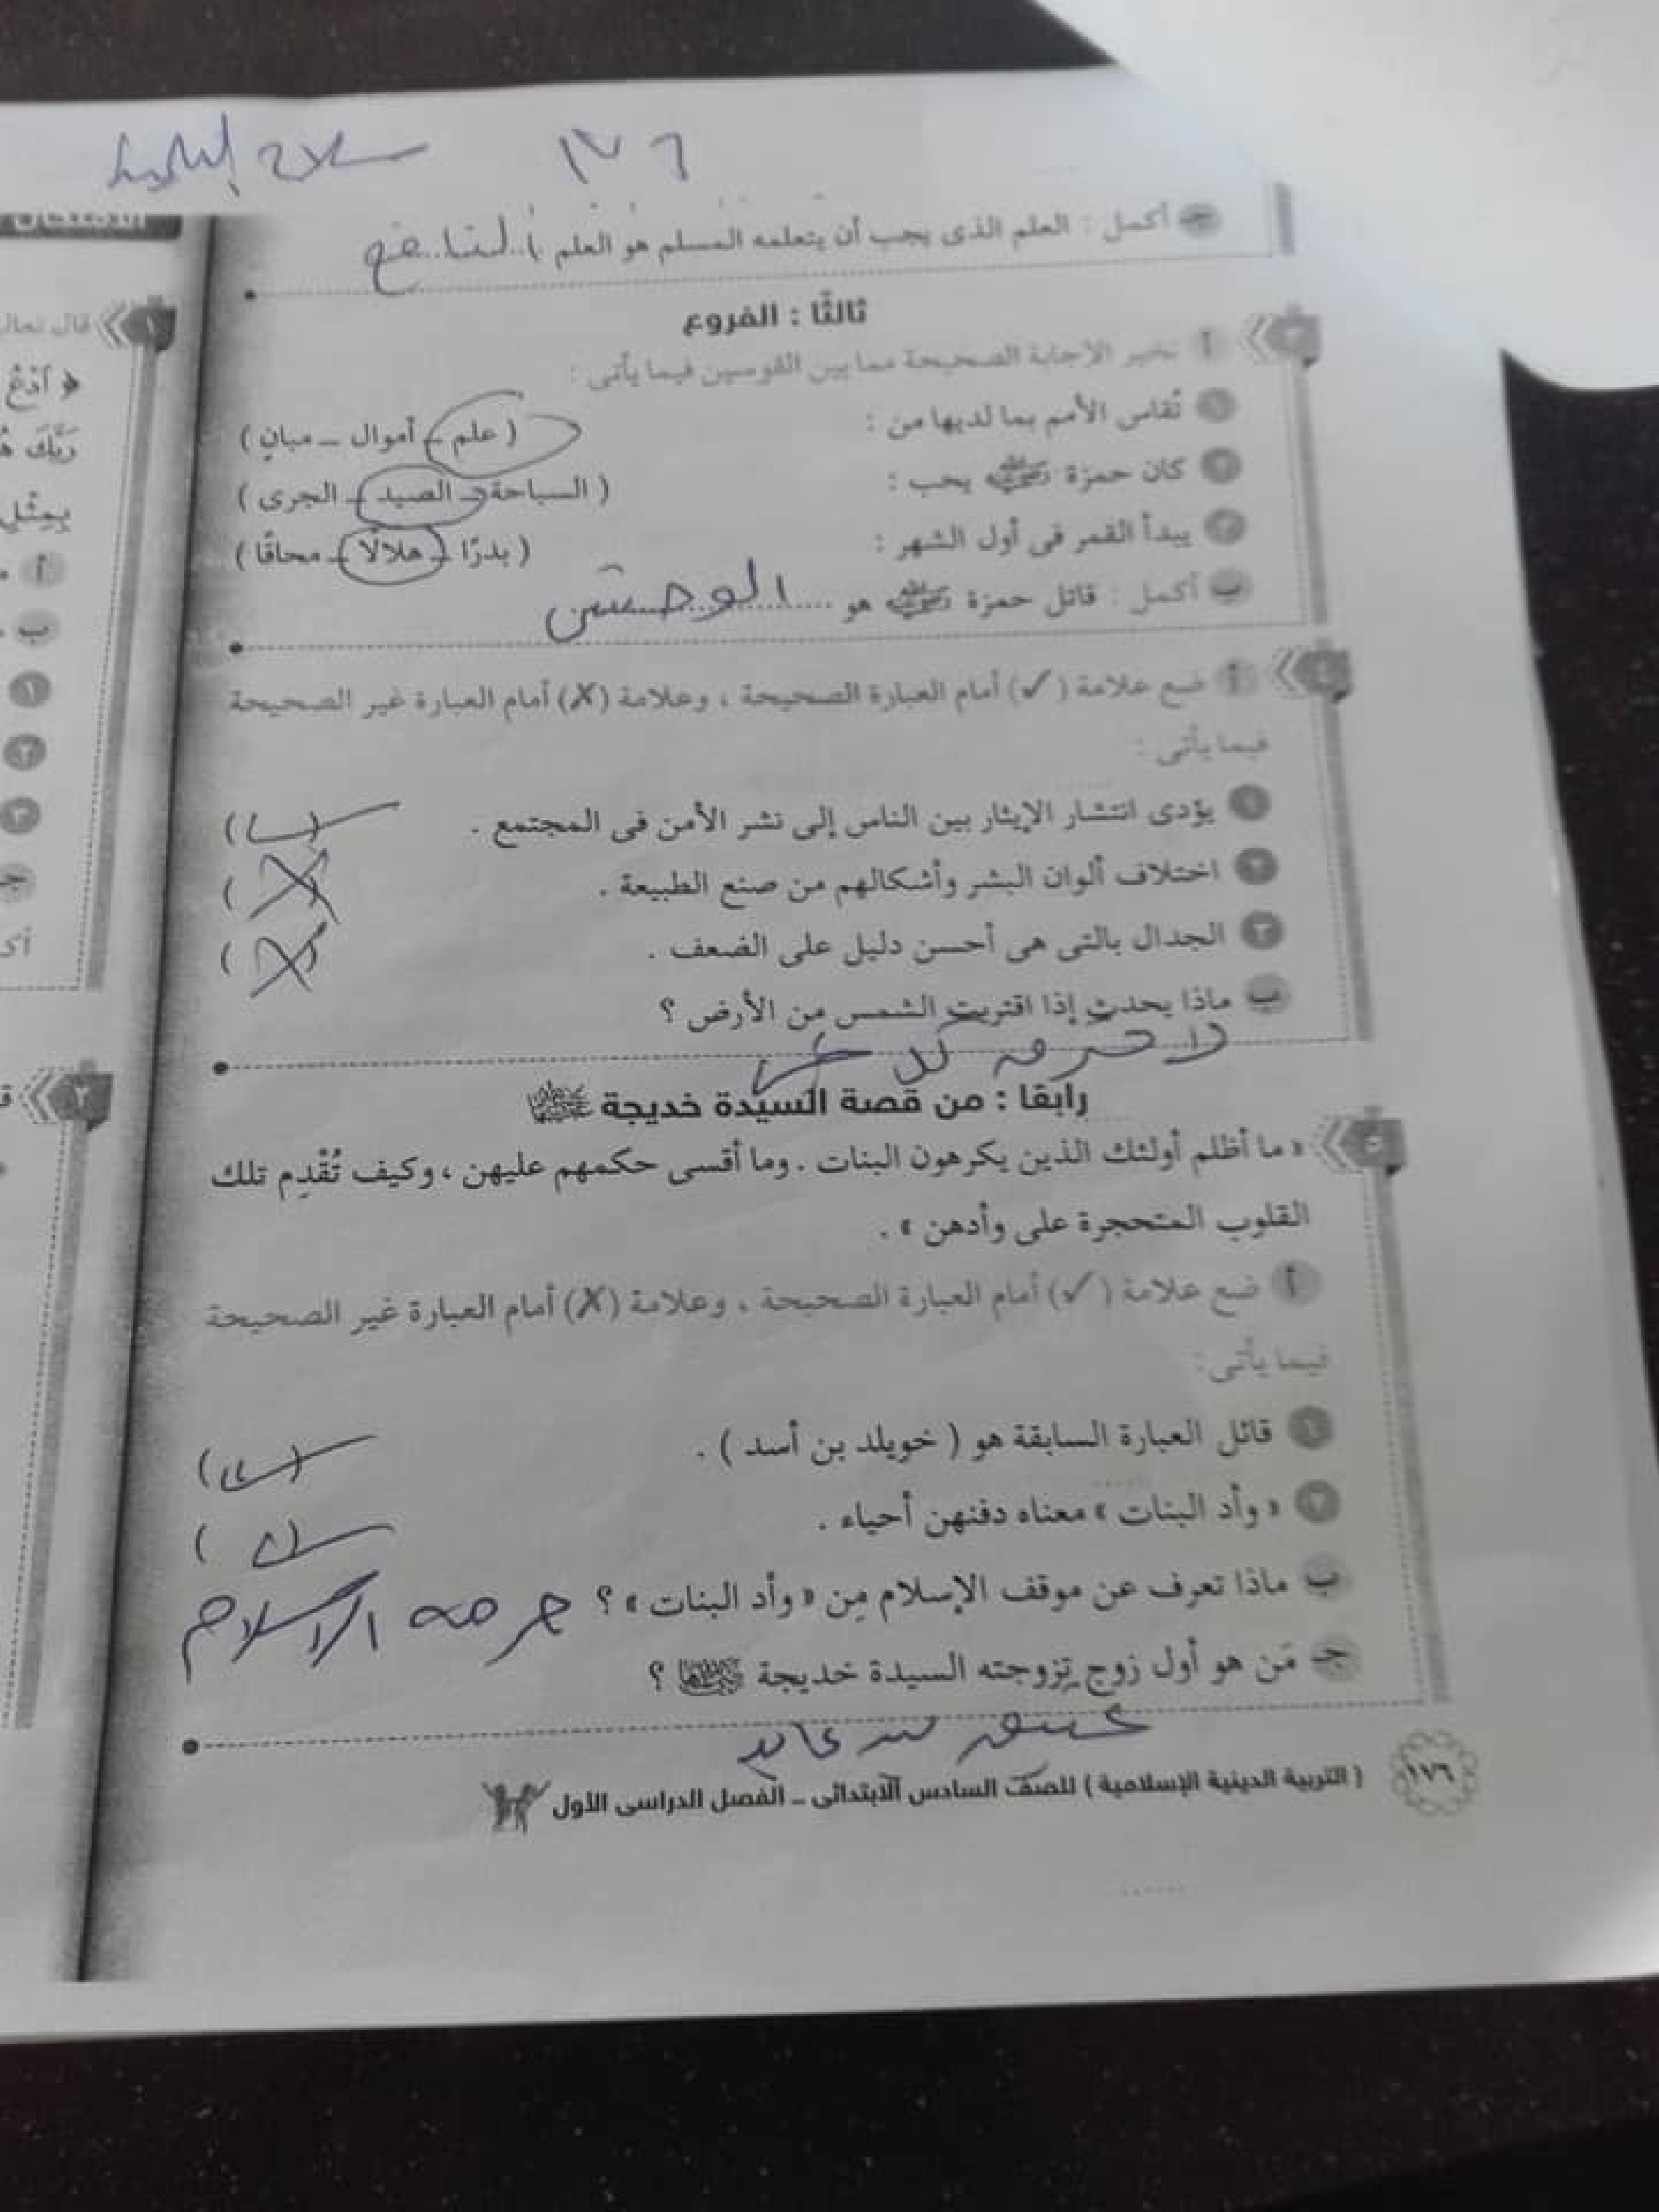 ١٧٦ سلاح التلميذ
جـ أكمل : العلم الذى يجب أن يتعلمه المسلم هو العلم النافع
ثالثًا : الفروع
٣ أ تخير الإجابة الصحيحة مما بين القوسين فيما يأتى :
١ تُقاس الأمم بما لديها من : ( علم – أموال – مبانٍ )
٢ كان حمزة رضي الله عنه يحب : ( السباحة – الصيد – الجرى )
٣ يبدأ القمر فى أول الشهر : ( بدرًا – هلالًا – محاقًا )
ب أكمل : قاتل حمزة رضي الله عنه هو الوحشى
٤ أ ضع علامة (✓) أمام العبارة الصحيحة ، وعلامة (X) أمام العبارة غير الصحيحة
فيما يأتى :
١ يؤدى انتشار الإيثار بين الناس إلى نشر الأمن فى المجتمع . (✓)
٢ اختلاف ألوان البشر وأشكالهم من صنع الطبيعة . (X)
٣ الجدال بالتى هى أحسن دليل على الضعف . (X)
ب ماذا يحدث إذا اقتربت الشمس من الأرض ؟
كل
رابعًا : من قصة السيدة خديجة
٥ « ما أظلم أولئك الذين يكرهون البنات . وما أقسى حكمهم عليهن ، وكيف تُقْدِم تلك
القلوب المتحجرة على وأدهن » .
أ ضع علامة (✓) أمام العبارة الصحيحة ، وعلامة (X) أمام العبارة غير الصحيحة
فيما يأتى:
١ قائل العبارة السابقة هو ( خويلد بن أسد ) . (✓)
٢ « وأد البنات » معناه دفنهن أحياء . (✓)
ب ماذا تعرف عن موقف الإسلام مِن « وأد البنات » ؟ حرمه الاسلام
جـ مَن هو أول زوج تزوجته السيدة خديجة ؟
عتيق بن عابد
١٧٦ ( التربية الدينية الإسلامية ) للصف السادس الابتدائى – الفصل الدراسى الأول
١ قال تعالى
﴿ ادْعُ
رَبَّكَ هُ
بِمِثْلِ
أ
ب
١
٢
٣
جـ
أك
٢